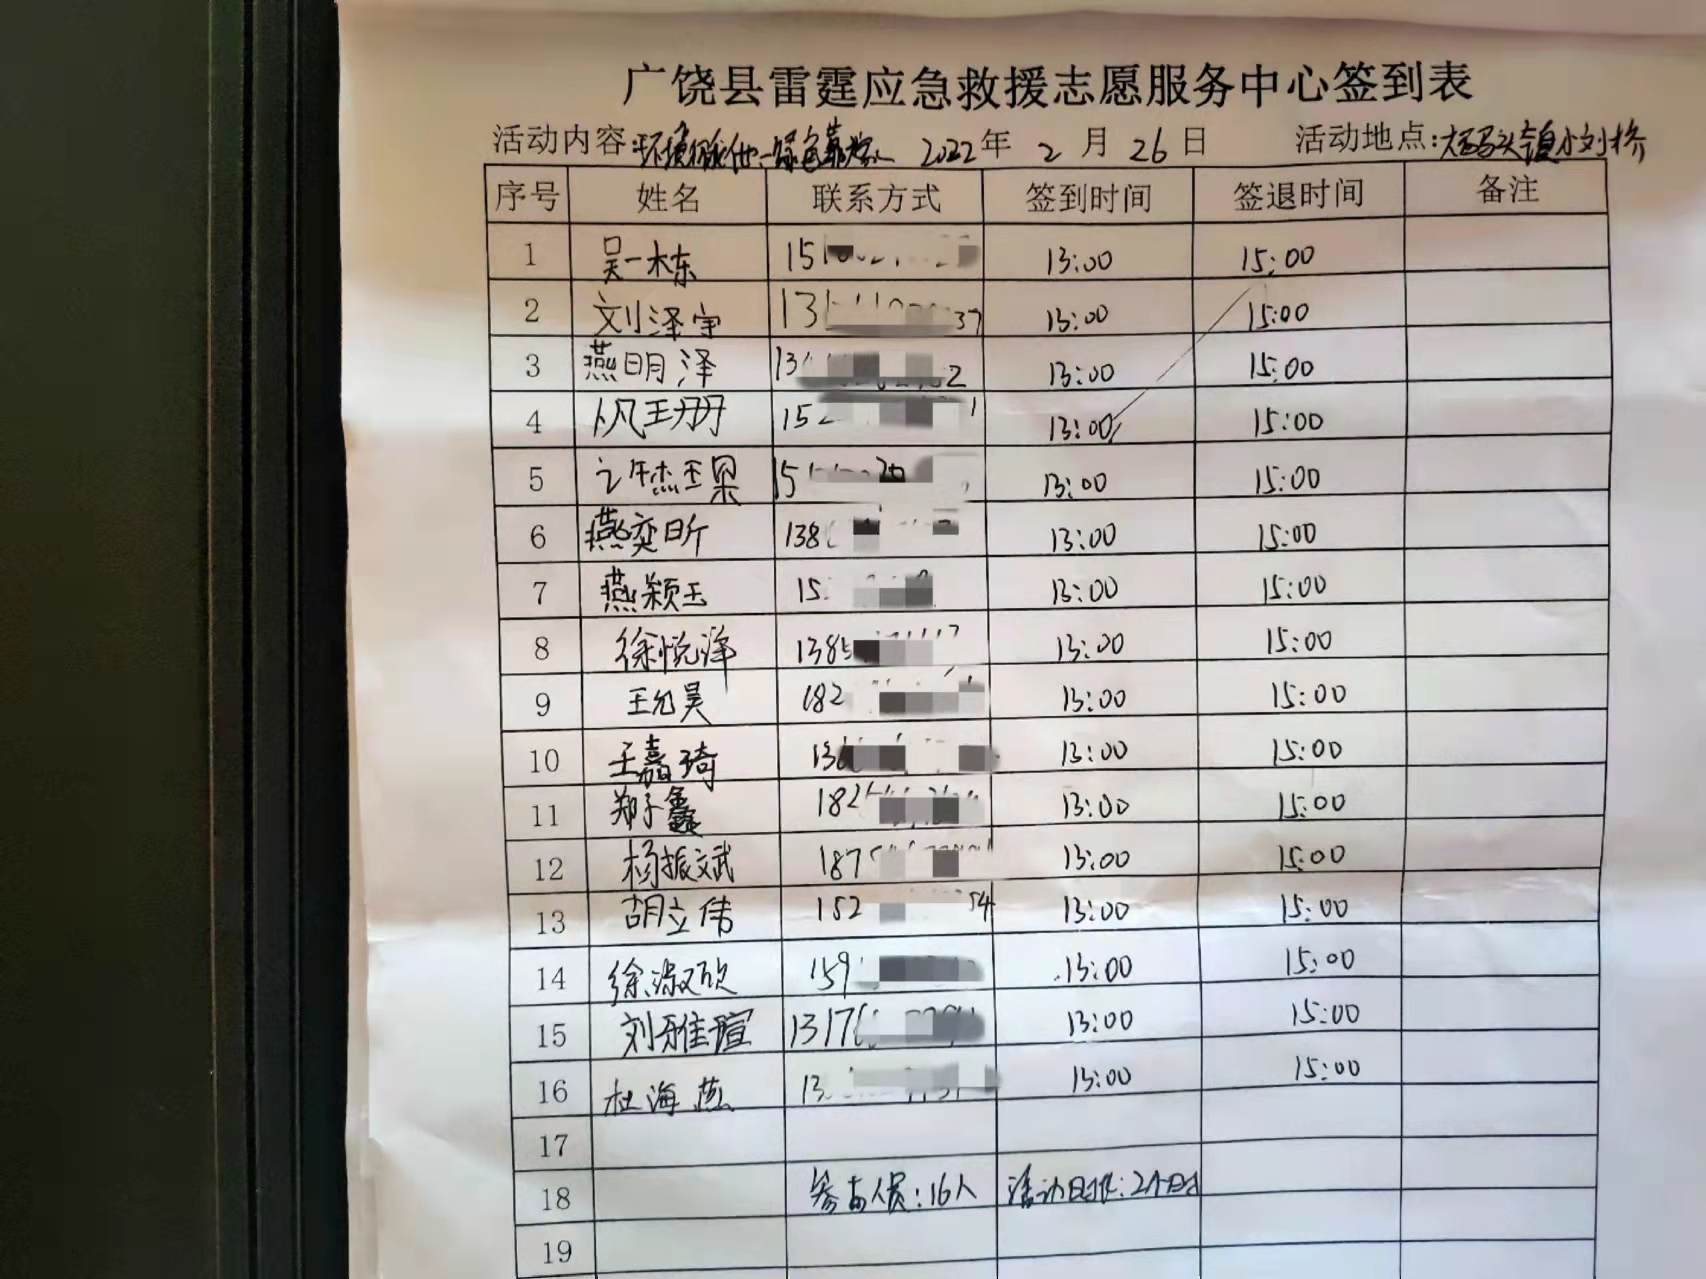 广饶县雷霆应急救援志愿服务中心签到表
活动内容: 2022年 2月 26日 活动地点:大码头镇小刘桥
序号 姓名 联系方式 签到时间 签退时间 备注
1 吴一栋 15 13:00 15:00
2 刘泽宇 13 37 13:00 15:00
3 燕明泽 13 2 13:00 15:00
4 152 1 13:00 15:00
5 15 13:00 15:00
6 燕奕昕 138 13:00 15:00
7 燕颖玉 15 13:00 15:00
8 徐悦泽 1385 13:00 15:00
9 王允昊 182 13:00 15:00
10 王嘉琦 13 13:00 15:00
11 郑子鑫 182 13:00 15:00
12 杨振斌 187 13:00 15:00
13 胡立伟 152 54 13:00 15:00
14 徐淑欣 159 13:00 15:00
15 刘雅瑄 1317 13:00 15:00
16 杜海燕 13 13:00 15:00
17
18 参与人员:16人 活动时长:2个小时
19